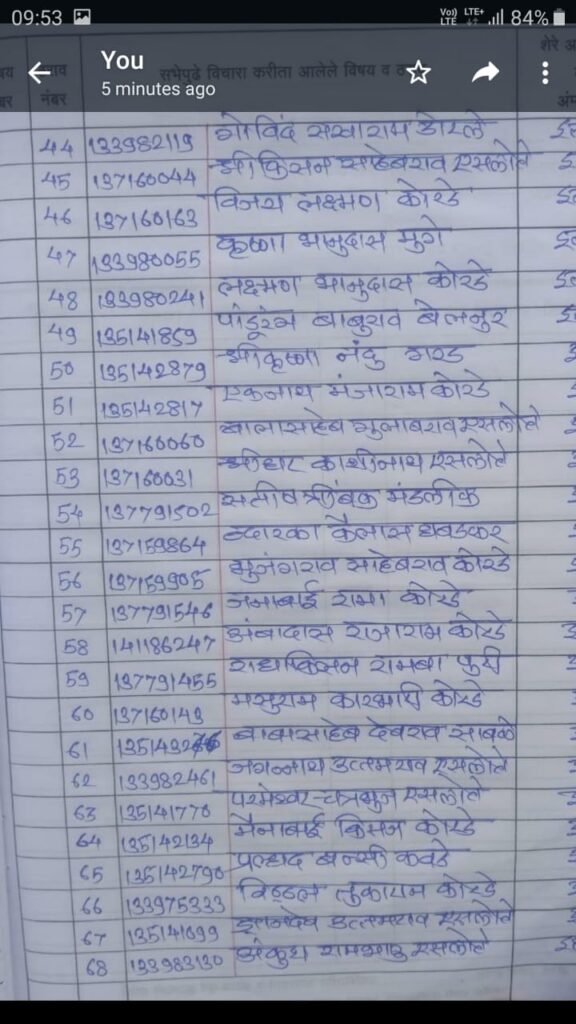 09:53 84%
You
5 minutes ago
सभेपुढे विचारा करीता आलेले विषय व
नंबर
44 133982119 गोविंद सखाराम कोरडे
45 137160044 श्रीकिसन साहेबराव एसलोते
46 137160163 विजय लक्ष्मण कोरडे
47 133980055 कृष्णा भानुदास मुगे
48 133980241 लक्ष्मण भानुदास कोरडे
49 135141859 पांडूरंग बाबुराव बेलनुर
50 135142879 श्रीकृष्णा नंदु गरड
51 135142817 एकनाथ मंजाराम कोरडे
52 137160060 बालासाहेब गुलाबराव एसलोते
53 137160031 श्रीधर काशीनाथ एसलोते
54 137791502 सतीष त्रींबक मंडलीक
55 137159864 व्दारका कैलास धबडकर
56 137159905 भुजंगराव साहेबराव कोरडे
57 137791546 जनाबाई रामा कोरडे
58 141186247 अंबादास राजाराम कोरडे
59 137791455 राधाकिसन रामबा पुरी
60 137160149 मसुराम कारभारी कोरडे
61 बाबासाहेब देवराव साबळे
62 133982461 जगन्नाथ उत्तमराव एसलोते
63 135141770 परमेश्वर चत्रभुज एसलोते
64 135142134 मैनाबाई किसन कोरडे
65 135142790 प्रल्हाद बन्सी कवडे
66 133975333 विठ्ठल तुकाराम कोरडे
67 135141699 ज्ञानदेव उत्तमराव एसलोते
68 133983130 अंकुश एसलोते